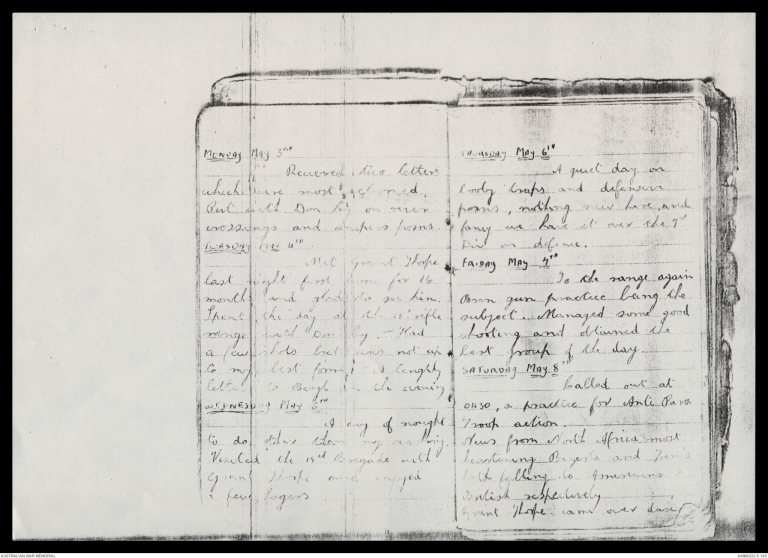 MONDAY MAY 3rd
Received two letters
which were most welcomed.
Put with Don Coy on river
crossings and snipers posns.
TUESDAY MAY 4th
Met Grant Thorpe
last night first time for 16
months and glad to see him.
Spent the day at the rifle
range with Don Coy. - Had
a few shots but was not up
to my best form a lengthy
letter to Beryl in the evening
WEDNESDAY MAY 5th
A day of nought
to do other than my reading.
Visited the 18th Brigade with
Grant Thorpe and enjoyed
a few lagers
THURSDAY MAY 6th
A quiet day on
booby traps and defensive
posns, nothing new here, and
fancy we have it over the 7th
Div on defence.
FRIDAY MAY 7th
To the range again
Bren gun practice being the
subject. Managed some good
shooting and obtained the
best group of the day.
SATURDAY MAY 8th
Called out at
0430, a practice for Anti Para
Troop action.
News from North Africa most
heartening Bizerta and Tunis
both falling to Americans
British respectively
Grant Thorpe came over during
AUSTRALIAN WAR MEMORIAL